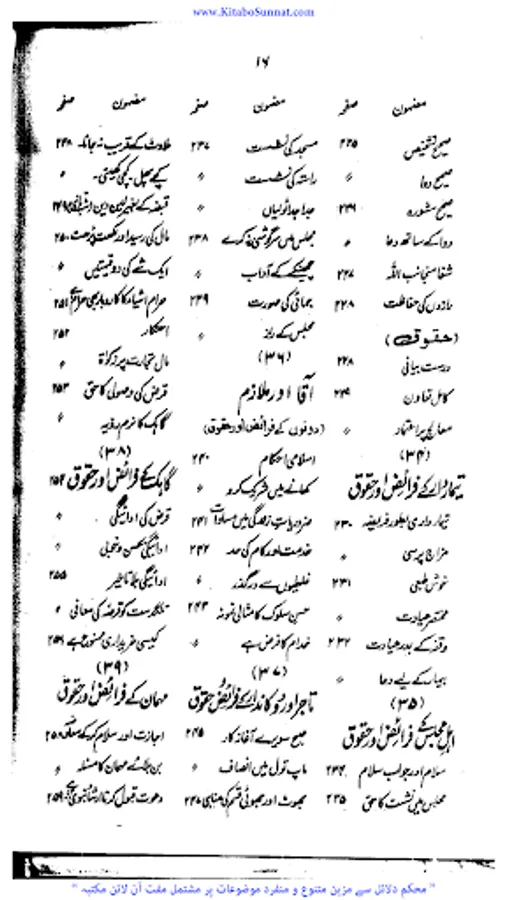 www.KitaboSunnat.com
۱۶
مضمون صفحہ
صحیح تشخیص ۲۲۵
صحیح دوا 〃
صحیح مشورہ ۲۲۶
دوا کے ساتھ دعا 〃
شفا منجانب اللہ ۲۲۷
رازوں کی حفاظت ۲۲۸
(حقوق)
درست بیانی ۲۲۸
کامل تعاون ۲۲۹
معالج پر اعتماد 〃
(۳۴)
تیماردار کے فرائض اور حقوق
تیمارداری بطور فریضہ ۲۳۰
مزاج پرسی 〃
خوش طبعی ۲۳۱
مختصر عیادت 〃
وقفہ کے بعد عیادت ۲۳۲
بیمار کے لیے دعا 〃
(۳۵)
اہل مجلس کے فرائض اور حقوق
سلام اور جواب سلام ۲۳۴
مجلس میں نشست کا حق ۲۳۵
مضمون صفحہ
مسجد کی نشست ۲۳۷
راستہ کی نشست 〃
جدا جدا ٹولیاں 〃
مجلس میں سرگوشی نہ کرے ۲۳۸
چھینکنے کے آداب 〃
جمائی کی صورت ۲۳۹
مجلس کے راز 〃
(۳۶)
آقا اور ملازم
(دونوں کے فرائض اور حقوق)
اسلامی احکام ۲۴۰
کھانے میں شریک کرو 〃
ضروریات زندگی میں مساوات ۲۴۱
خدمت اور کام کی حد ۲۴۲
غلطیوں سے درگذر 〃
حسن سلوک کا مثالی نمونہ ۲۴۳
خدام کا فرض ہے 〃
(۳۷)
تاجر اور دوکاندار کے فرائض و حقوق
صبح سویرے آغاز کار ۲۴۵
ماپ تول میں انصاف 〃
جھوٹ اور جھوٹی قسم کی مناہی ۲۴۷
مضمون صفحہ
ملاوٹ کے قریب نہ جانا ۲۴۸
کچے پھل، کچی کھیتی 〃
قبضہ کے بغیر لین دین ۲۴۹
مال کی رسید اور لکھت پڑھت ۲۵۰
ایک شے کی دو قیمتیں 〃
حرام اشیاء کا کاروبار بھی حرام ہے ۲۵۱
احتکار ۲۵۲
مال تجارت پر زکوٰۃ 〃
قرض کی وصولی کا حق ۲۵۳
گاہک کا نرم رویہ 〃
(۳۸)
گاہک کے فرائض اور حقوق ۲۵۴
قرض کی ادائیگی 〃
ادائیگی بحسن و خوبی 〃
ادائیگی بلا تاخیر ۲۵۵
تنگدست کو قرضہ کی معافی 〃
کیسی خریداری ممنوع ہے ۲۵۶
(۳۹)
مہمان کے فرائض اور حقوق
اجازت اور سلام ۲۵۸
بن بلائے مہمان کا مسئلہ 〃
دعوت قبول کرنا ۲۵۹
" محکم دلائل سے مزین متنوع و منفرد موضوعات پر مشتمل مفت آن لائن مکتبہ "